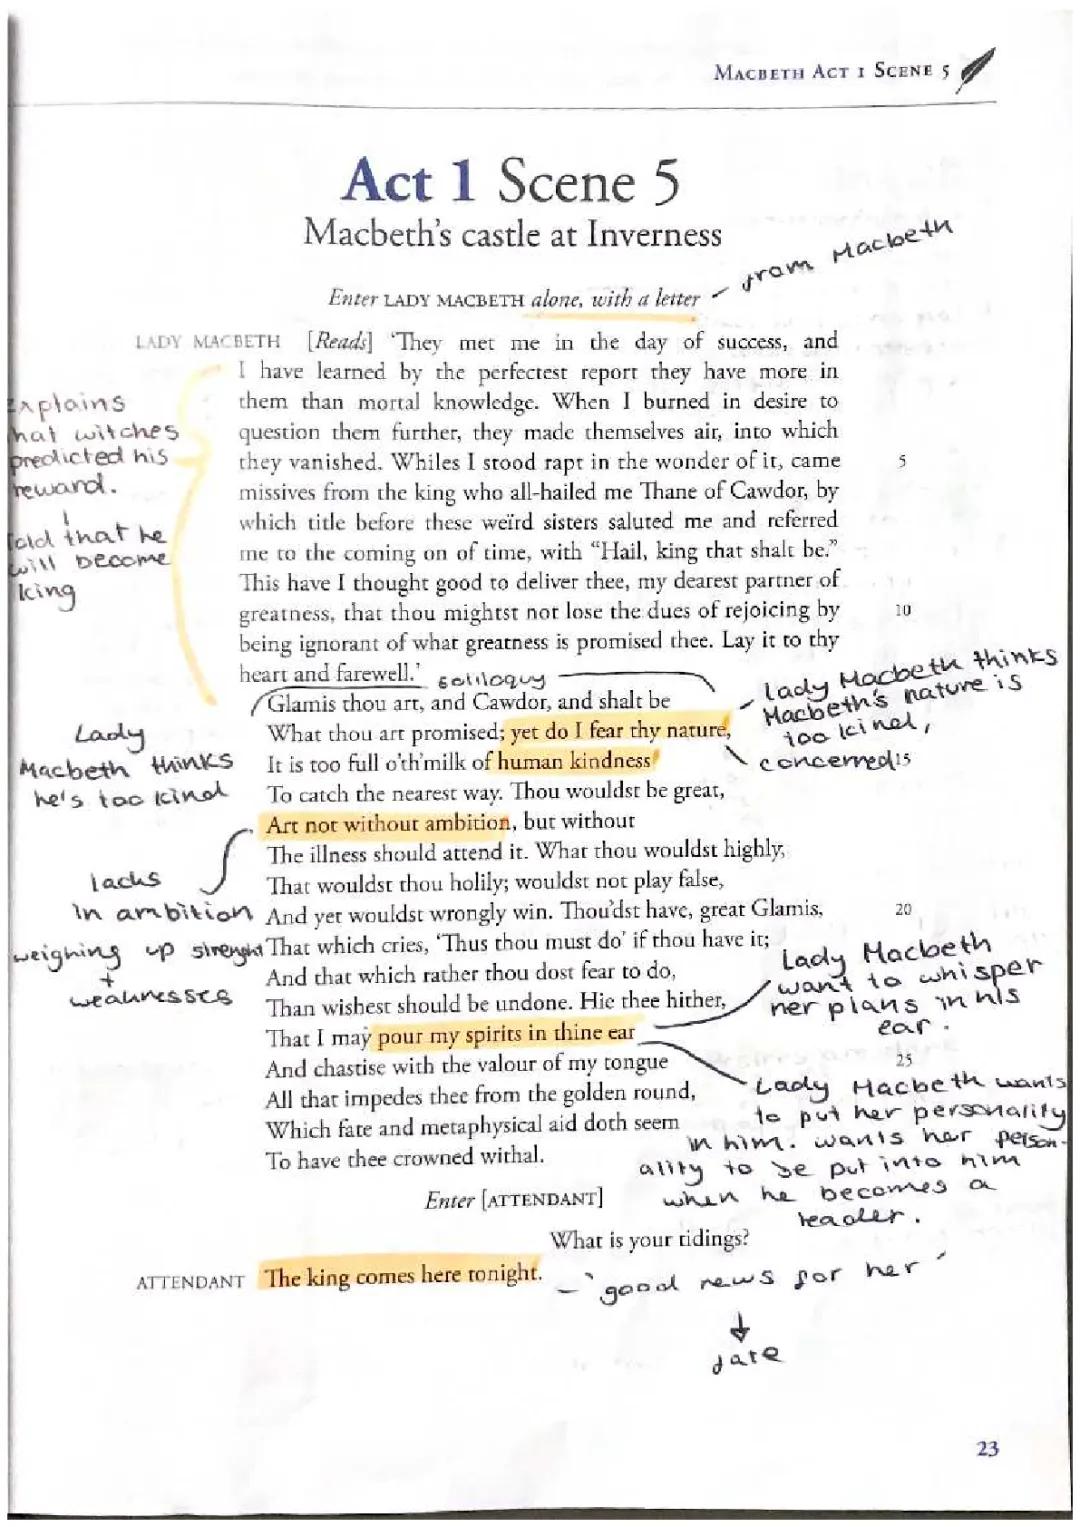 MACBETH ACT 1 SCENE 5
Act 1 Scene 5
Macbeth's castle at Inverness
from Macbeth
Enter LADY MACBETH alone, with a letter
LADY MACBETH [Reads] 'They met me in the day of success, and
I have learned by the perfectest report they have more in
them than mortal knowledge. When I burned in desire to
question them further, they made themselves air, into which
they vanished. Whiles I stood rapt in the wonder of it, came 5
missives from the king who all-hailed me Thane of Cawdor, by
which title before these weïrd sisters saluted me and referred
me to the coming on of time, with "Hail, king that shalt be."
This have I thought good to deliver thee, my dearest partner of
greatness, that thou mightst not lose the dues of rejoicing by 10
being ignorant of what greatness is promised thee. Lay it to thy
heart and farewell.'
Explains
that witches
predicted his
reward.
Told that he
will become
king
soliloquy
Glamis thou art, and Cawdor, and shalt be
What thou art promised; yet do I fear thy nature,
It is too full o'th'milk of human kindness 15
To catch the nearest way. Thou wouldst be great,
Art not without ambition, but without
The illness should attend it. What thou wouldst highly,
That wouldst thou holily; wouldst not play false,
And yet wouldst wrongly win. Thou'dst have, great Glamis, 20
That which cries, 'Thus thou must do' if thou have it;
And that which rather thou dost fear to do,
Than wishest should be undone. Hie thee hither,
That I may pour my spirits in thine ear
And chastise with the valour of my tongue 25
All that impedes thee from the golden round,
Which fate and metaphysical aid doth seem
To have thee crowned withal.
lady Macbeth thinks
Macbeth's nature is
too kind,
concerned
Lady
Macbeth thinks
he's too kind
lacks
in ambition
weighing up strenght
+
weaknesses
Lady Macbeth
want to whisper
her plans in his
ear.
Lady Macbeth wants
to put her personality
in him. wants her person-
ality to be put into him
when he becomes a
leader.
Enter [ATTENDANT]
What is your tidings?
ATTENDANT The king comes here tonight.
- 'good news for her'
fate
23